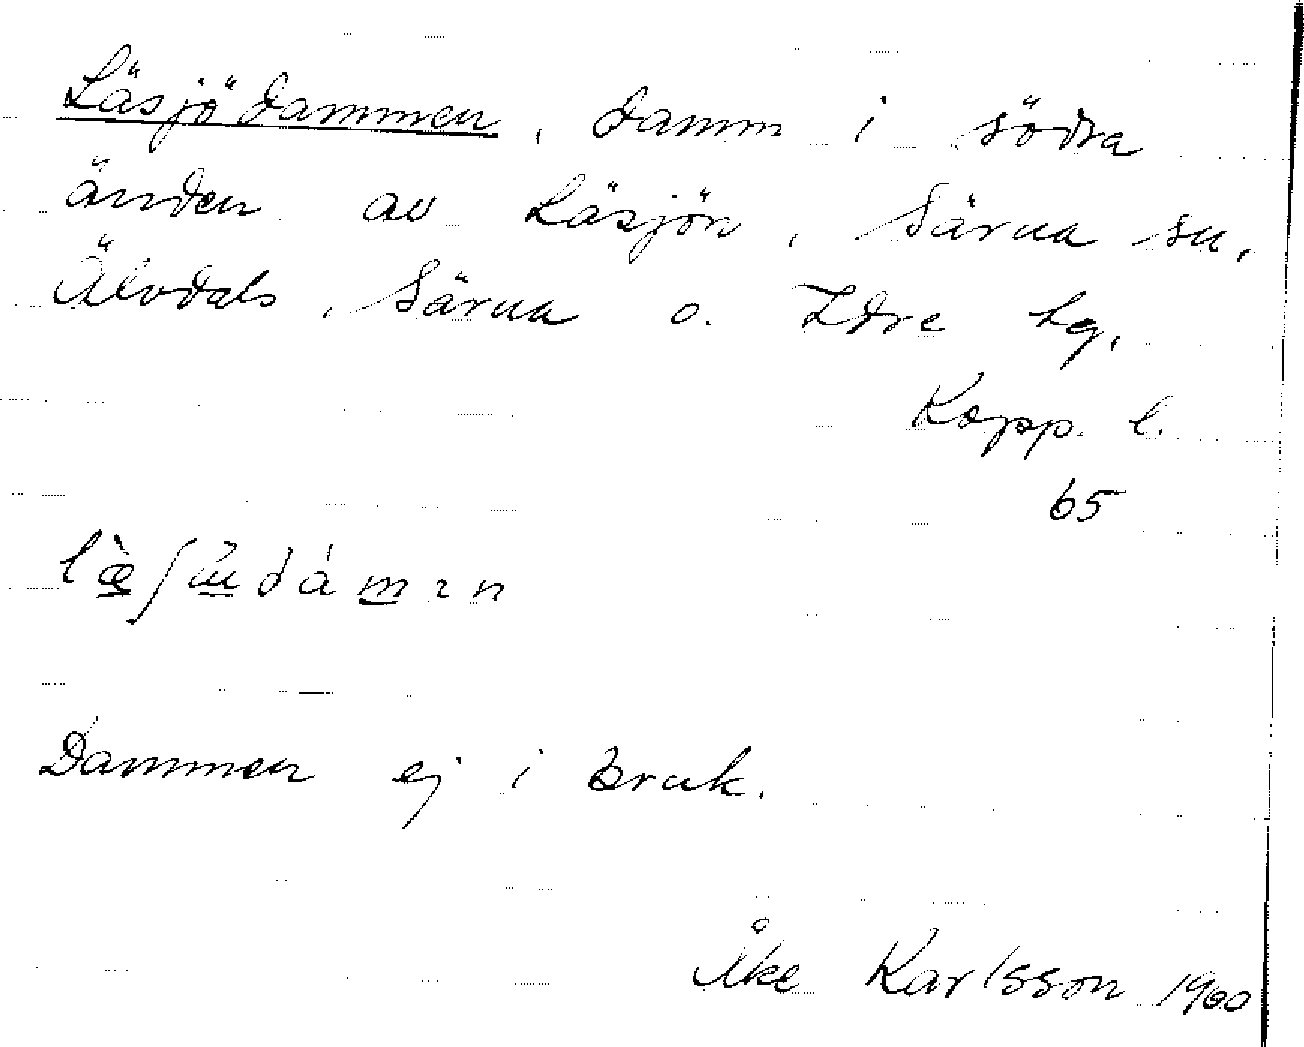 Läsjödammen, damm i södra
änden av Läsjön, Särna sn,
Älvdals, Särna o. Idre tg,
Kopp. l.
65
Dammen ej i bruk.
Åke Karlsson 1960